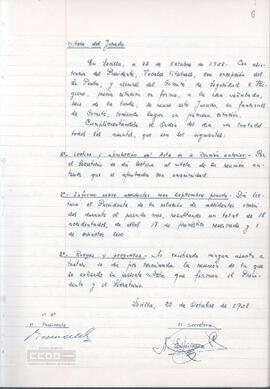 6
Acta del Jurado
En Sevilla, a 22 de Octubre de 1958. Con asis-
tencia del Presidente, Vocales titulares, con excepción del
Sr. Prats, y asesores del Comité de Seguridad e Hi-
giene, previa citación en forma, a la hora señalada,
de la tarde, se reune este Jurado, en funciones
de Comité, teniendo lugar en primera citación.
Cumplimentándole el Orden del día, van tratado
todos los asuntos, que son los siguientes:
1º- Lectura y aprobación del Acta de la Reunión anterior.- Por
el Secretario se dió lectura al Acta de la reunión an-
terior que es aprobada con unanimidad.
2º- Informe sobre accidentes mes Septiembre pasado. Da lec-
tura el Presidente de la relación de accidentes ocurri-
dos durante el pasado mes, resultando un total de 18
accidentados, de ellos 17 de pronóstico reservado y 1
de carácter leve.
3º- Ruegos y preguntas.- No existiendo ningún asunto a
tratar se dió por terminada la reunión de la que
se extiende la presente Acta que firman el Presi-
dente y el Secretario.
Sevilla, 22 de Octubre de 1958
Vº Bº
El Presidente
El Secretario
CCOO